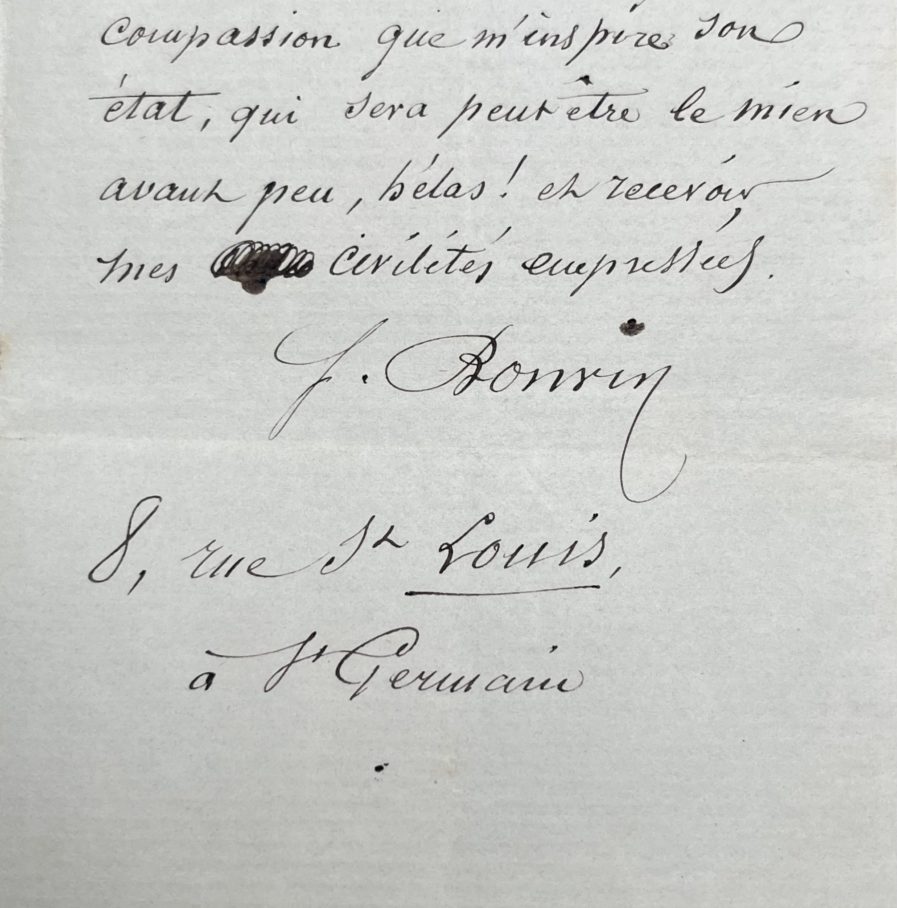 compassion que m'inspire son
état, qui sera peut être le mien
avant peu, hélas! et recevoir
mes civilités empressées.
f. Bonvin
8, rue St Louis,
à St Germain